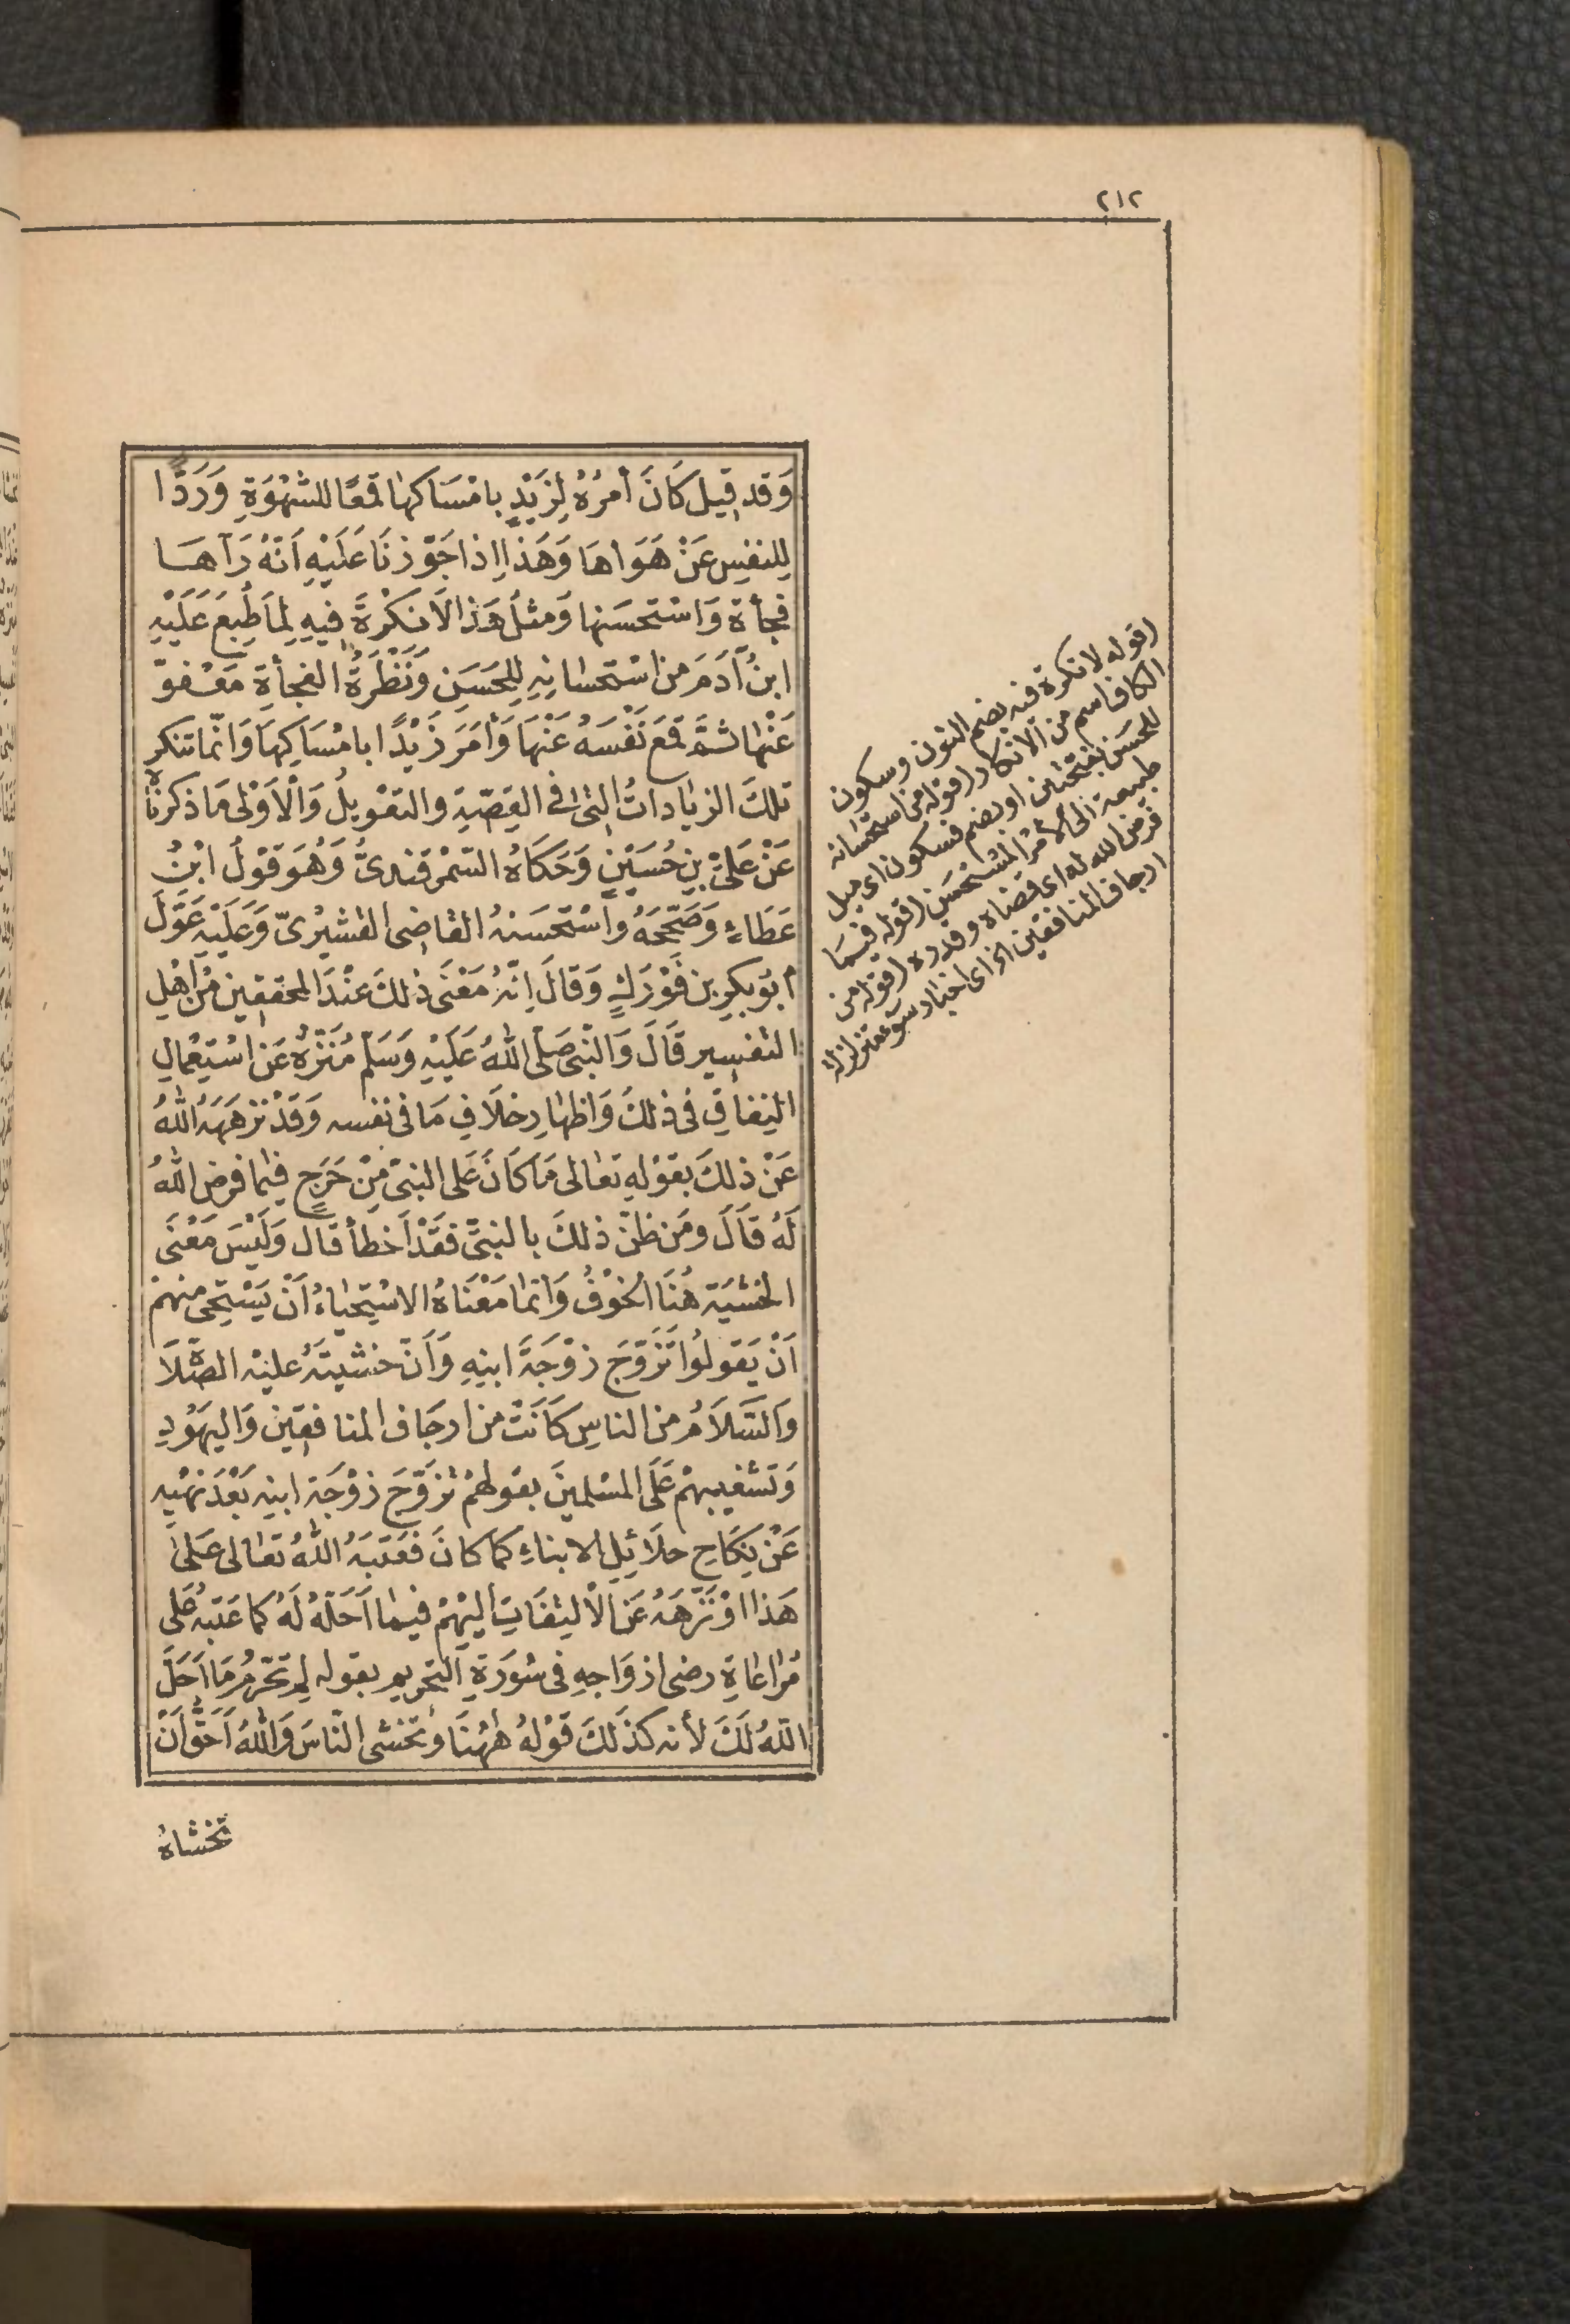 ٢١٢
وَقد قِيل كَانَ أمرُهُ لِزَيْدٍ بامْسَاكهٰا قمعًا للشهْوَةِ وَرَدًّا
لِلنفسِ عَنْ هَوَاهَا وَهَذا اِذا جَوّزنَا عَلَيْهِ اَنّهُ رَآهَا
فجأة وَاسْتحسَنها وَمثلُ هَذا لَا نكْرَةَ فِيهِ لِمَا طُبِعَ عَلَيْهِ
ابنُ آدَمَ من اسْتحسَانِهِ لِلحَسَنِ وَنَظْرَةُ الفجأةِ مَعْفوّ
عَنْهٰا ثمَّ قمَعَ نَفْسَهُ عَنْهَا وَأمَرَ زَيْدًا بامْسَاكِهَا وَانّما تنكر
تلكَ الزيادَاتُ التى فى القِصّةِ والتعْويلُ وَالْاَوْلىٰ مَا ذكرنَاهُ
عَنْ عَلىّ بنِ حُسَيْنٍ وَحَكَاهُ السّمْرقندىُّ وَهُوَ قَوْلُ ابْنُ
عَطَاءٍ وَصَحّحَهُ وَاسْتَحسَنهُ القاضِى القشَيْرىّ وَعَلَيْهِ عَوّلَ
ابُو بكرٍ بن فَوْرَكٍ وَقَالَ اِنّهُ مَعْنَى ذلكَ عنْدَ المحققِين مِنْ اهْلِ
التفسِير قَالَ وَالنّبى صَلّى اللهُ عَلَيْهِ وَسَلّم مُنَزّهٌ عَن اسْتِعْمَالِ
النِفاقِ فى ذلكَ وَاظهٰارِ خلَافِ مَا فى نفسه وَقَدْ نزهَهُ اللهُ
عَنْ ذلكَ بقوْلهِ تعَالى مَا كَانَ عَلى النبىّ مِنْ حَرَجٍ فيما فرض اللهُ
لَهُ قَالَ ومَن ظنّ ذلكَ بالنبىّ فقَدْ اَخطأ قال وَلَيْسَ مَعْنَى
الخشيَة هُنَا الخوْفُ وَانما مَعْنَاهُ الاسْتِحيَاءُ اَنْ يَسْتحِى منهمْ
اَنْ يَقولُوا تَزَوّجَ زوْجَةَ ابنِهِ وَاَنّ خشيتَهُ عليْه الصّلَاة
وَالسَّلَامُ من الناسِ كَانَتْ من ارجَافِ المنافقِين وَاليهَوُدِ
وَتشغيبهمْ عَلَى المسْلمينَ بقوْلهمْ تزوّجَ زوْجَة ابنِهِ بَعْدَ نهْيهِ
عَنْ نِكَاحِ حلَائِلِ الابناءِ كَما كانَ فعَتبَهُ اللهُ تعَالى عَلىٰ
هَذا اوْ نزّهَهُ عَنِ الْالتِفَاتِ اليْهِمْ فيما اَحَلّهُ لَهُ كما عَتَبهُ عَلى
مُراعَاةِ رضى ازوَاجِهِ فى سُورَةِ التحريم بقوله لِم تحرّمُ مَا اَحَلَّ
اللهُ لَكَ لأنه كذَلكَ قَوْلهُ هٰهُنَا وَتخشى النّاسَ وَاللهُ اَحَقُّ اَنْ
تخشاهُ
(قوله لا نكرة فيه بضم النون وسكون
الكاف اسم من الانكار (قوله من استحسانه
للحسن بفتحتين او بضم فسكون اى ميل
طبيعة الى الأمر المستحسن (قوله فيما
فرض الله له اى قضاه وقدره (قوله من
ارجاف المنافقين اى اخبار سوء